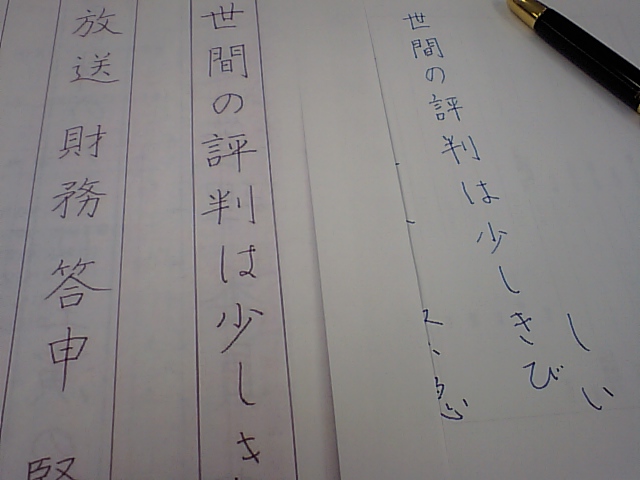 世間の評判は少しきびしい
世間の評判は少しき
放送 財務 答申 堅